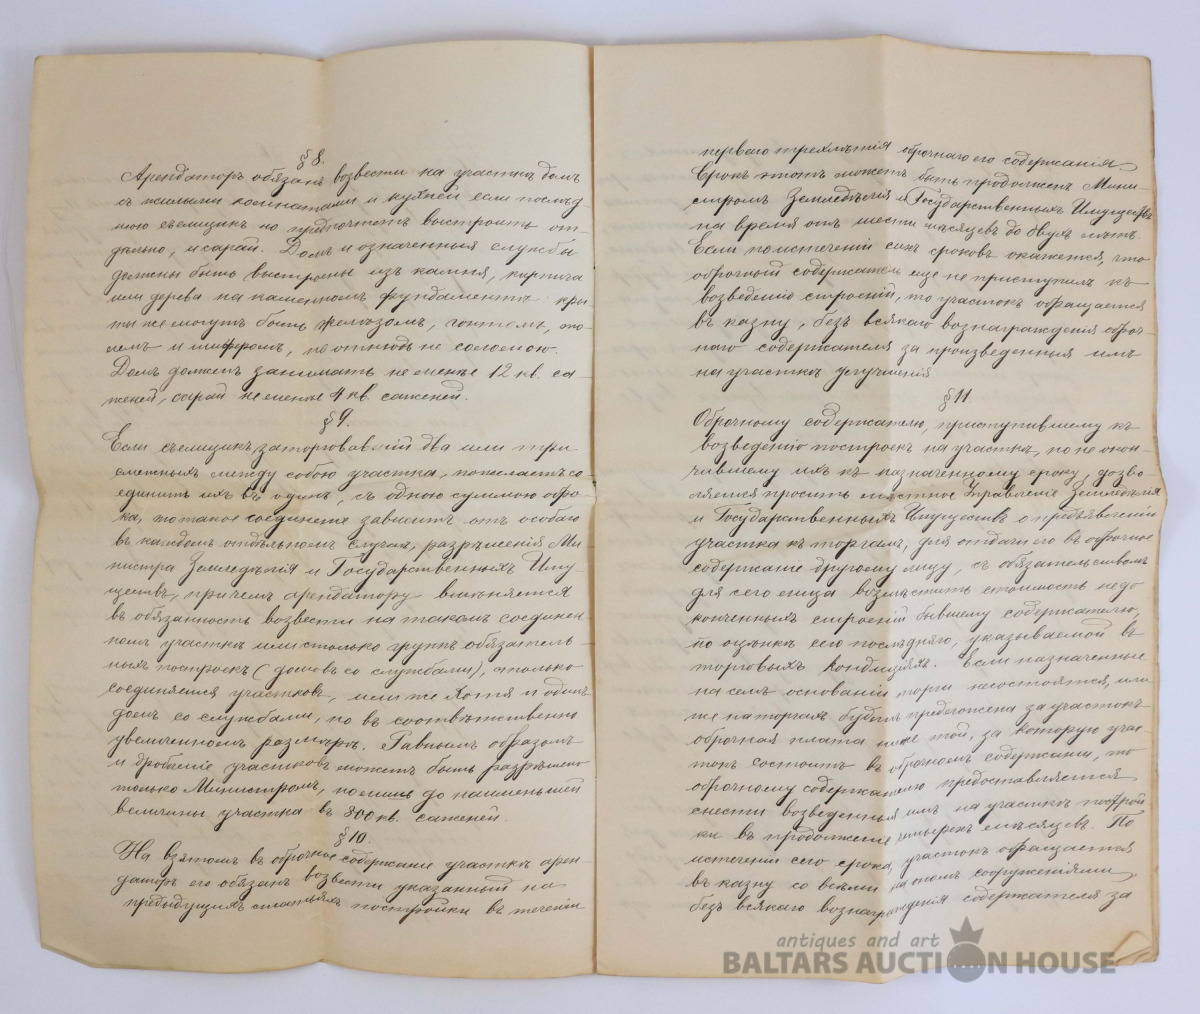 § 8.
Арендаторъ обязанъ возвести на участкѣ домъ
съ жилыми комнатами и кухней если послѣд
нюю съемщикъ не предпочтетъ выстроить от-
дѣльно, и сарай. Домъ и означенныя службы
должны быть выстроены изъ камня, кирпича
или дерева на каменномъ фундаментѣ кры
ти же могутъ быть желѣзомъ, гонтомъ, то-
лемъ и шиферомъ, но отнюдь не соломою.
Домъ долженъ занимать не менѣе 12 кв. са-
женей, сарай не менѣе 4 кв. саженей.
§ 9.
Если съемщикъ, заторговавшій два или три
смежныхъ между собою участка, пожелаетъ со-
единить ихъ въ одинъ, съ одною суммою обро-
ка, то такое соединеніе зависитъ отъ особаго
въ каждомъ отдѣльномъ случаѣ, разрѣшенія Ми
нистра Земледѣлія и Государственныхъ Иму-
ществъ, причемъ арендатору вмѣняется
въ обязанность возвести на такомъ соединен-
номъ участкѣ или столько группъ обязатель-
ныхъ построекъ (домовъ со службами), сколько
соединяется участковъ, или же хотя и одинъ
домъ со службами, но въ соотвѣтственно
увеличенномъ размѣрѣ. Равнымъ образомъ
и дробленіе участковъ можетъ быть разрѣшено
только Министромъ, но лишь до наименьшей
величины участка въ 800 кв. саженей.
§ 10.
На взятомъ въ оброчное содержаніе участкѣ арен-
даторъ его обязанъ возвести указанныя на
предыдущихъ статьяхъ постройки въ теченіи
перваго трехлѣтія оброчнаго его содержанія
Срокъ этотъ можетъ быть продолженъ Мини-
стромъ Земледѣлія и Государственныхъ Имуществъ
на время отъ шести мѣсяцевъ до двухъ лѣтъ.
Если по истеченіи сихъ сроковъ окажется, что
оброчный содержатель еще не приступилъ къ
возведенію строеній, то участокъ обращается
въ казну, безъ всякаго вознагражденія оброч-
наго содержателя за произведенныя имъ
на участкѣ улучшенія
§ 11
Оброчному содержателю, приступившему къ
возведенію построекъ на участкѣ, но не окон-
чившему ихъ къ назначенному сроку, дозво-
ляется просить мѣстное Управленіе Земледѣлія
и Государственныхъ Имуществъ о предъявленіи
участка къ торгамъ, для отдачи его въ оброчное
содержаніе другому лицу, съ обязательствомъ
для сего лица возмѣстить стоимость недо
конченныхъ строеній бывшему содержателю,
по оцѣнкѣ его послѣдняго, указываемой въ
торговыхъ кондиціяхъ. Если назначенные
на семъ основаніи торги несостоятся, или
же на торгахъ будетъ предложена за участокъ
оброчная плата ниже той, за которую учас-
токъ состоитъ въ оброчномъ содержаніи, то
оброчному содержателю предоставляется
снести возведенныя имъ на участкѣ построй-
ки въ продолженіе четырехъ мѣсяцевъ. По
истеченіи сего срока, участокъ обращается
въ казну со всѣми на немъ сооруженіями,
безъ всякаго вознагражденія содержателя за
antiques and art
BALTARS AUCTION HOUSE